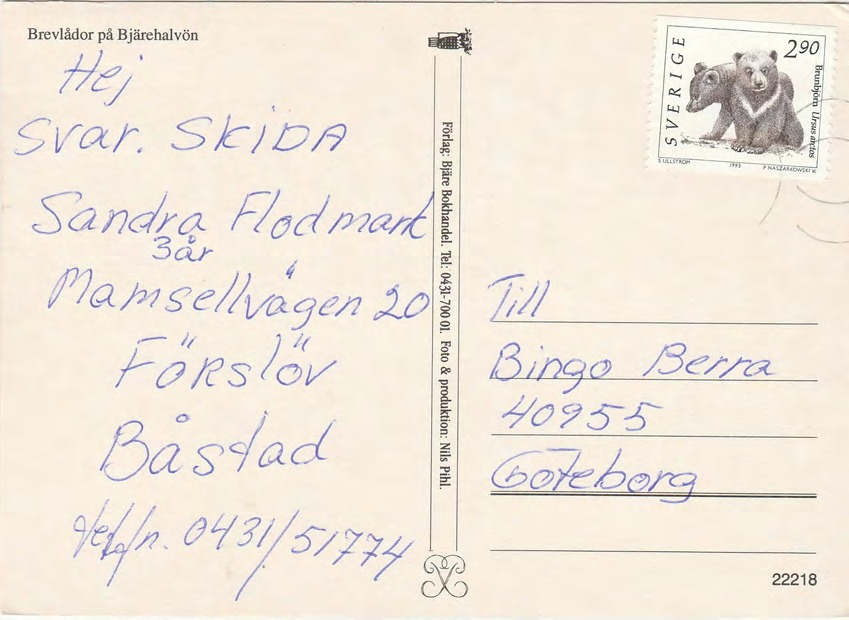 Brevlådor på Bjärehalvön
Hej
Svar. SKIDA
Sandra Flodmark
3år
Mamsellvägen 20
Förslöv
Båstad
telf/n. 0431/51774
Förlag: Bjäre Bokhandel. Tel: 0431-700 01. Foto & produktion: Nils Pihl.
SVERIGE
290
Brunbjörn Ursus arctos
S.ULLSTRÖM 1993 P.NASZARKOWSKI SC
Till
Bingo Berra
40955
Göteborg
22218